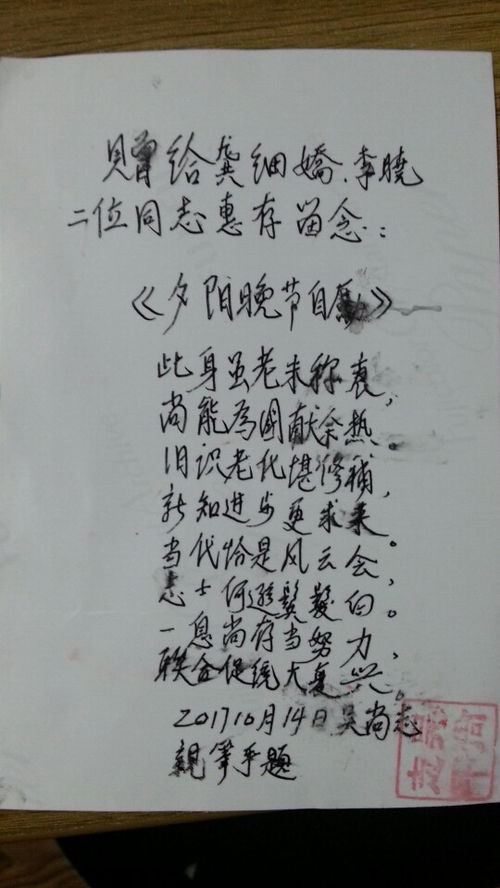 赠给龚细嬌、李晓
二位同志惠存留念：
《夕阳晚节自勵》
此身虽老未称衰，
尚能為國献余热。
旧识老化堪修補，
新知进步更求来。
当代恰是风云会，
志士何遜鬓髮白。
一息尚存当努力，
联合促统大复兴。
2017 10月14日吴尚志
親筆手题